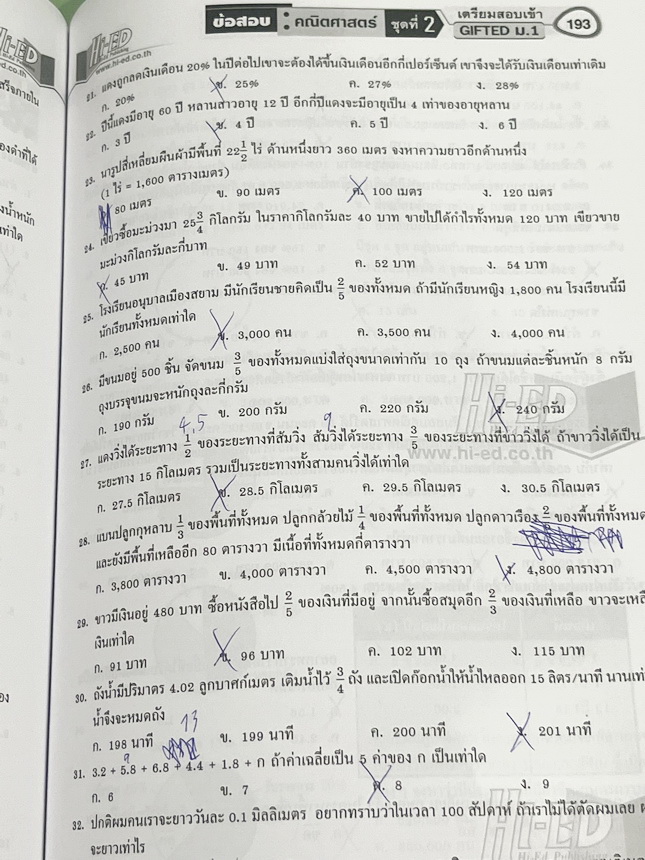 Hi-ED
www.hi-ed.co.th
ข้อสอบ : คณิตศาสตร์ ชุดที่ 2 เตรียมสอบเข้า GIFTED ม.1 193
21. แดงถูกลดเงินเดือน 20% ในปีต่อไปเขาจะต้องได้ขึ้นเงินเดือนอีกกี่เปอร์เซ็นต์ เขาจึงจะได้รับเงินเดือนเท่าเดิม
ก. 20% ข. 25% ค. 27% ง. 28%
22. ปีนี้แดงมีอายุ 60 ปี หลานสาวอายุ 12 ปี อีกกี่ปีแดงจะมีอายุเป็น 4 เท่าของอายุหลาน
ก. 3 ปี ข. 4 ปี ค. 5 ปี ง. 6 ปี
23. นารูปสี่เหลี่ยมผืนผ้ามีพื้นที่ 22 1/2 ไร่ ด้านหนึ่งยาว 360 เมตร จงหาความยาวอีกด้านหนึ่ง
(1 ไร่ = 1,600 ตารางเมตร)
80 เมตร ข. 90 เมตร ค. 100 เมตร ง. 120 เมตร
24. เขียวซื้อมะม่วงมา 25 3/4 กิโลกรัม ในราคากิโลกรัมละ 40 บาท ขายไปได้กำไรทั้งหมด 120 บาท เขียวขาย
มะม่วงกิโลกรัมละกี่บาท
ก. 45 บาท ข. 49 บาท ค. 52 บาท ง. 54 บาท
25. โรงเรียนอนุบาลเมืองสยาม มีนักเรียนชายคิดเป็น 2/5 ของทั้งหมด ถ้ามีนักเรียนหญิง 1,800 คน โรงเรียนนี้มี
นักเรียนทั้งหมดเท่าใด
ก. 2,500 คน ข. 3,000 คน ค. 3,500 คน ง. 4,000 คน
26. มีขนมอยู่ 500 ชิ้น จัดขนม 3/5 ของทั้งหมดแบ่งใส่ถุงขนาดเท่ากัน 10 ถุง ถ้าขนมแต่ละชิ้นหนัก 8 กรัม
ถุงบรรจุขนมจะหนักถุงละกี่กรัม
ก. 190 กรัม ข. 200 กรัม ค. 220 กรัม ง. 240 กรัม
4,5 9
27. แดงวิ่งได้ระยะทาง 1/2 ของระยะทางที่ส้มวิ่ง ส้มวิ่งได้ระยะทาง 3/5 ของระยะทางที่ขาววิ่งได้ ถ้าขาววิ่งได้เป็น
ระยะทาง 15 กิโลเมตร รวมเป็นระยะทางทั้งสามคนวิ่งได้เท่าใด
ก. 27.5 กิโลเมตร ข. 28.5 กิโลเมตร ค. 29.5 กิโลเมตร ง. 30.5 กิโลเมตร
28. แบนปลูกกุหลาบ 1/3 ของพื้นที่ทั้งหมด ปลูกกล้วยไม้ 1/4 ของพื้นที่ทั้งหมด ปลูกดาวเรือง ของพื้นที่ทั้งหมด
และยังมีพื้นที่เหลืออีก 80 ตารางวา มีเนื้อที่ทั้งหมดกี่ตารางวา
ก. 3,800 ตารางวา ข. 4,000 ตารางวา ค. 4,500 ตารางวา ง. 4,800 ตารางวา
29. ขาวมีเงินอยู่ 480 บาท ซื้อหนังสือไป 2/5 ของเงินที่มีอยู่ จากนั้นซื้อสมุดอีก 2/3 ของเงินที่เหลือ ขาวจะเหลือ
เงินเท่าใด
ก. 91 บาท ข. 96 บาท ค. 102 บาท ง. 115 บาท
30. ถังน้ำมีปริมาตร 4.02 ลูกบาศก์เมตร เติมน้ำไว้ 3/4 ถัง และเปิดก๊อกน้ำให้น้ำไหลออก 15 ลิตร/นาที นานเท่า
น้ำจึงจะหมดถัง
ก. 198 นาที ข. 199 นาที ค. 200 นาที ง. 201 นาที
13
9
31. 3.2 + 5.8 + 6.8 + 4.4 + 1.8 + ก ถ้าค่าเฉลี่ยเป็น 5 ค่าของ ก เป็นเท่าใด
ก. 6 ข. 7 ค. 8 ง. 9
32. ปกติผมคนเราจะยาววันละ 0.1 มิลลิเมตร อยากทราบว่าในเวลา 100 สัปดาห์ ถ้าเราไม่ได้ตัดผมเลย
จะยาวเท่าไร
Hi-ED
www.hi-ed.co.th
Hi-ED
Hi-Ed Publishing